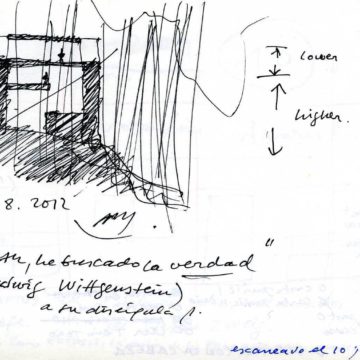 lower
higher.
8. 2012
he buscado la verdad"
Ludwig Wittgenstein)
a su discípula
escaneado el 10